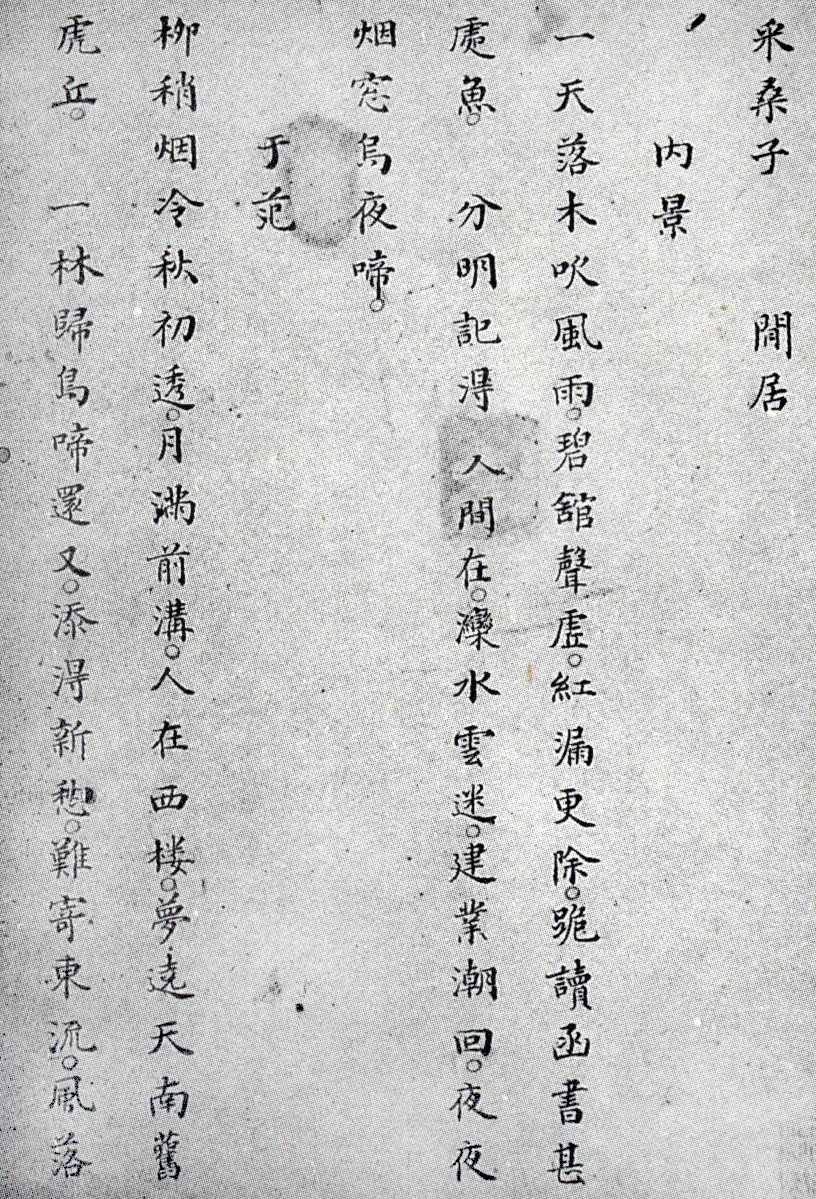 采桑子　閒居
内景
一天落木吹風雨。碧舘聲虛。紅漏更除。跪讀函書甚
處魚。　分明記淂人間在。灤水雲迷。建業潮回。夜夜
烟窓烏夜啼。
于范
柳稍烟冷秋初透。月滿前溝。人在西楼。夢遶天南舊
虎丘。　一林歸鳥啼還又。添淂新愁。難寄東流。風落